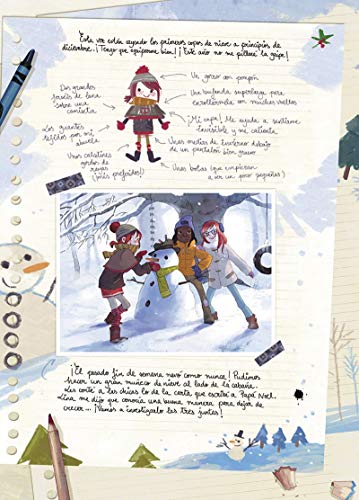 Esta vez están cayendo los primeros copos de nieve a principios de
diciembre. ¡Tengo que equiparme bien! ¡Este año no me pillará la gripe!
Un gorro con pompón
Dos grandes
jerséis de lana
sobre una
camiseta
Una bufanda superlarga para
enrollármela con muchas vueltas
¡Mi capa! Me ayuda a sentirme
invencible y me calienta
Los guantes
tejidos por mi
abuela
Unas medias de invierno debajo
de un pantalón bien grueso
Unos calcetines
gordos de
rayas
(¡mis preferidos!)
Unas botas (que empiezan
a ser un poco pequeñas)
¡El pasado fin de semana nevó como nunca! Pudimos
hacer un gran muñeco de nieve al lado de la cabaña.
Les conté a las chicas lo de la carta que escribí a Papá Noel.
Lina me dijo que conocía una buena manera para dejar de
crecer... ¡Vamos a investigarlo las tres juntas!